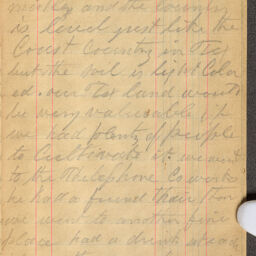 milky and the country
is level just like the
Coast Country in Tex
but the soil is light Color
ed. our Tex land would
be very valuable if
we had plenty of people
to Cultivate it. we went
to the Telephone Co works
he had a friend thair Tom
we went to another fine
place had a drink